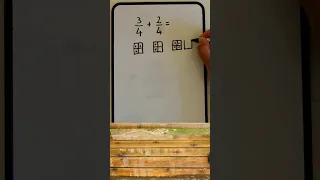 3/4 + 2/4 =